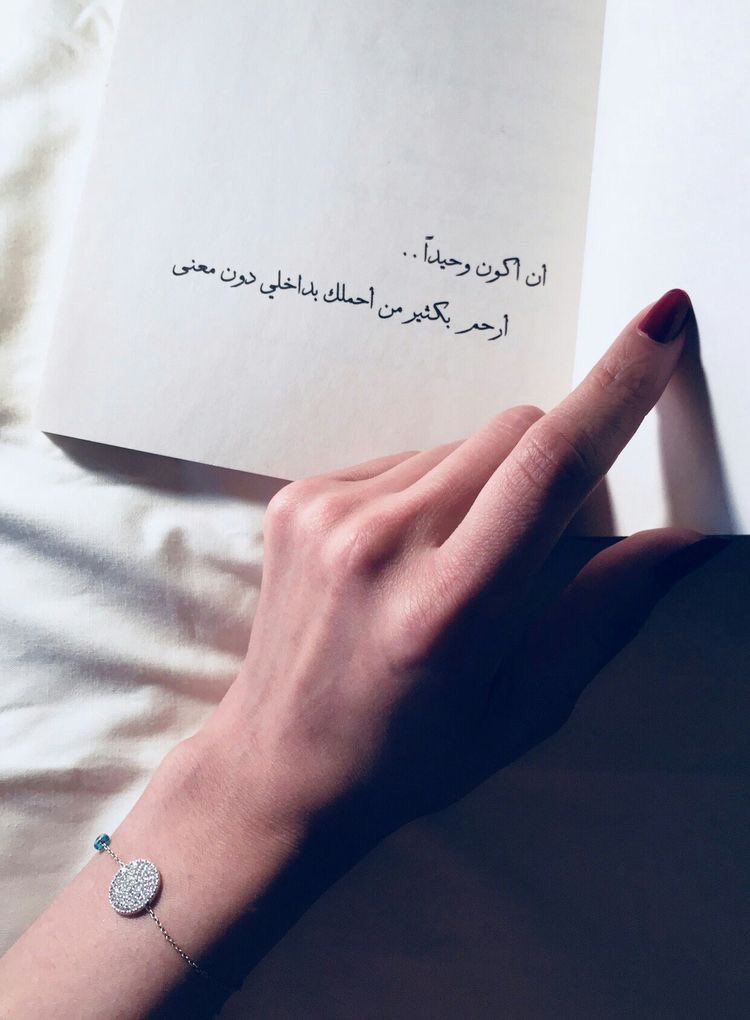 أن أكون وحيداً ..
أرحم بكثير من أحملك بداخلي دون معنى